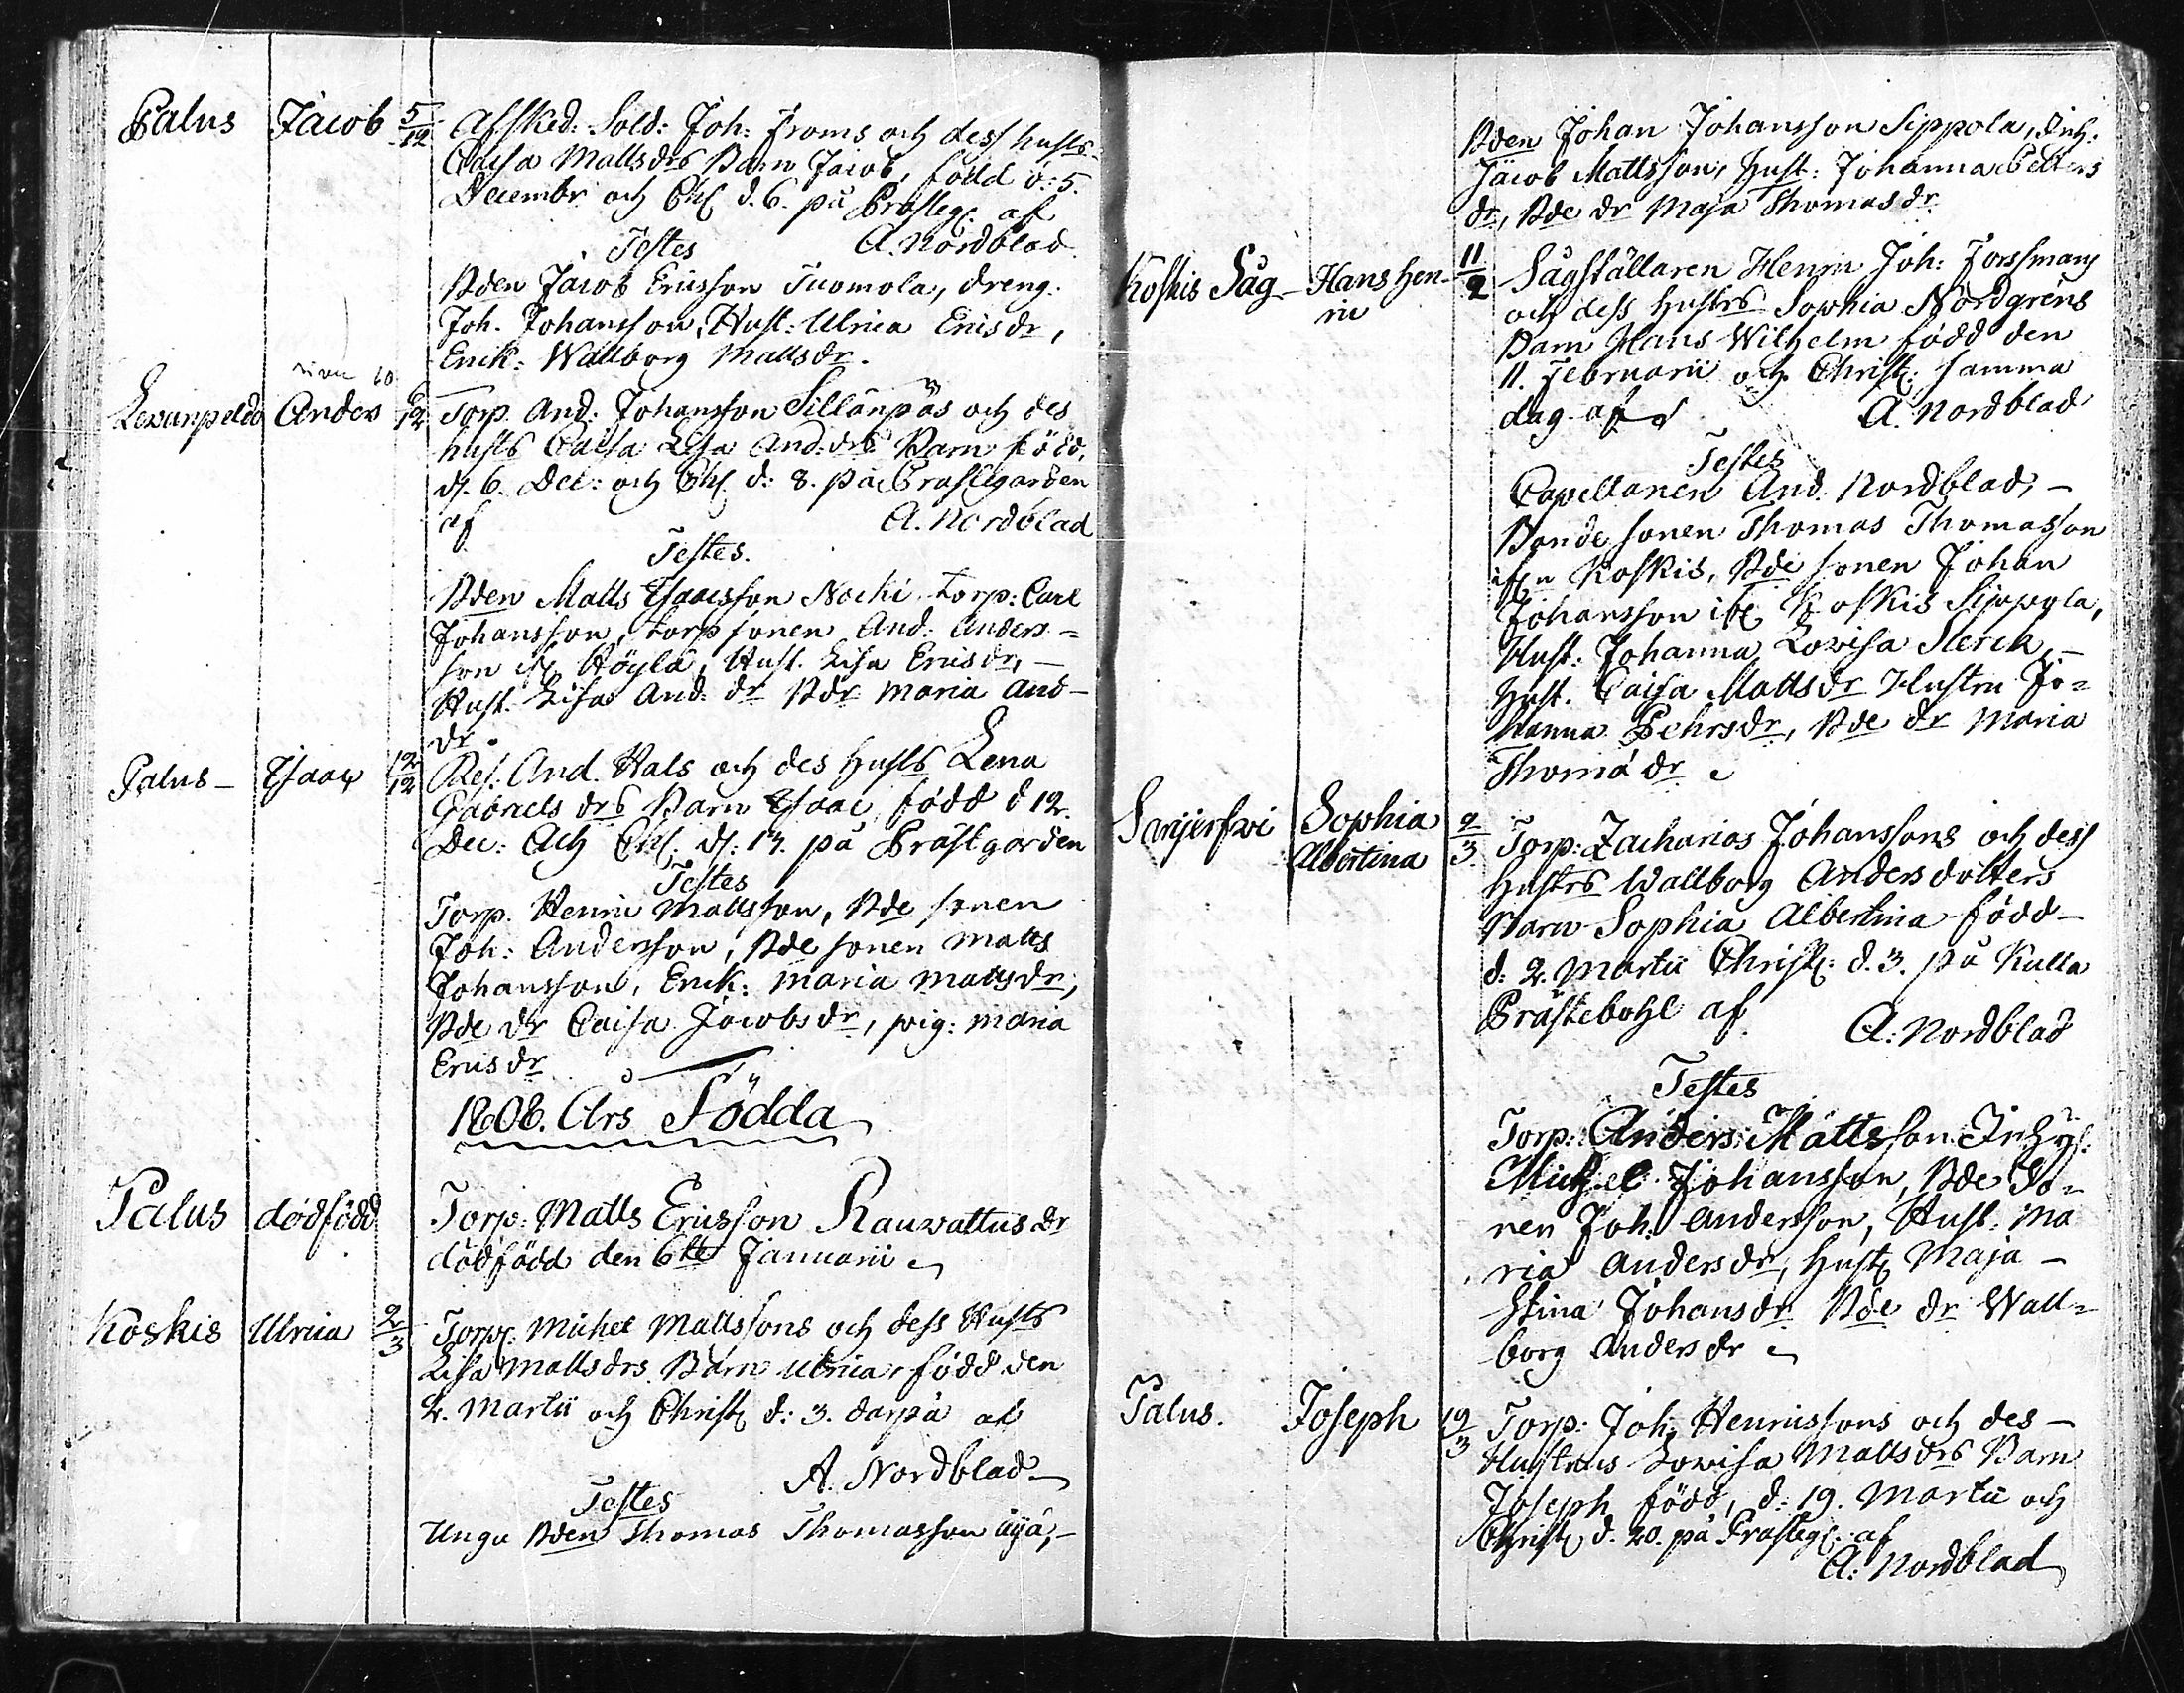 Palus Jacob 5/12 Afsked: Sold: Joh: Froms och dess husts
Caisa Mattsdrs Barn Jacob, född d: 5.
Decembr och Chr d. 6. på Prästeg: af
Testes A. Nordblad
Bden Jacob Ericsson Tuomola, dreng:
Joh. Johansson, Hust: Ulrica Ericsdr,
Enk: Wallborg Mattsdr.
Anders 6/12 Torp. And: Johansson Sillänpäs och des
husts Caisa Lisa And:drs Barn född,
d. 6. Dec: och Chr d: 8. på Prästegården
af A. Nordblad
Testes.
Bden Matts Isaacsson Nochi torp: Carl
Johansson, torp sonen And: Anders=
son Höylä, Hust. Lisa Ericsdr, –
Hust. Lisa And: dr Bdr Maria And–
dr.
Palus – Isaac 12/12 Res. And. Hals och des husts Lena
Gabriels drs Barn Isaac född d 12.
Dec: Och Chr. d: 13. på Prästgården
Testes
Torp. Henric Mattsson, Bde sonen
Joh: Andersson, Bde sonen Matts
Johansson, Enk: Maria Mattsdr,
Bde dr Caisa Jacobsdr, pig: Maria
Ericsdr
1808. Års Födda
Palus dödfödd Torp: Matts Ericsson Rauvattus dr
dödfödd den 6te Januarii
Koskis Ulrica 2/3 Torp: Michel Mattssons och dess Husts
Lisa Mattsdrs Barn Ulrica, född den
2. Martii och Christ d: 3. darpå af
A. Nordblad
Testes
Unga Bden Thomas Thomasson
Bden Johan Johansson Sippola, Inh:
Jacob Mattsson, Hust: Johanna Petters
dr, Bde dr Maja Thomasdr
Koskis Såg – Hans Hen-
ric 11/2 Sågställaren Henric Joh: Forssmans
och dess hustrs Sophia Nordgrens
Barn Hans Wilhelm född den
11. Februarii och Christ: samma
dag af A. Nordblad
Testes
Capellanen And. Nordblad, –
Bonde sonen Thomas Thomasson
ifrn Koskis, Bde sonen Johan
Johansson ifr Koskis Sippola,
Hust: Johanna Lovisa Sterck, –
Hust. Caisa Mattsdr Hustru Jo=
hanna Pehrsdr, Bde dr Maria
Thoma dr
Sophia
Albertina 2/3 Torp: Zacharias Johanssons och dess
hustrs Wallborg Andersdotters
Barn Sophia Albertina född –
d: 2. Martii Christ: d. 3. på Kulla
Prästebohl af A: Nordblad
Testes
Torp: Anders Mattsson Inhys:
Michel Johansson, Bde So=
nen Joh: Andersson, Hust: Ma
ria Andersdr, Hust Maja –
Stina Johansdr Bde dr Wall=
borg Anders dr
Palus. Joseph 19/3 Torp: Joh: Henricssons och des –
Hustrus Lovisa Mattsdrs Barn
Joseph född, d: 19. Martii och
Christ d. 20. på Prästeg: af
A: Nordblad